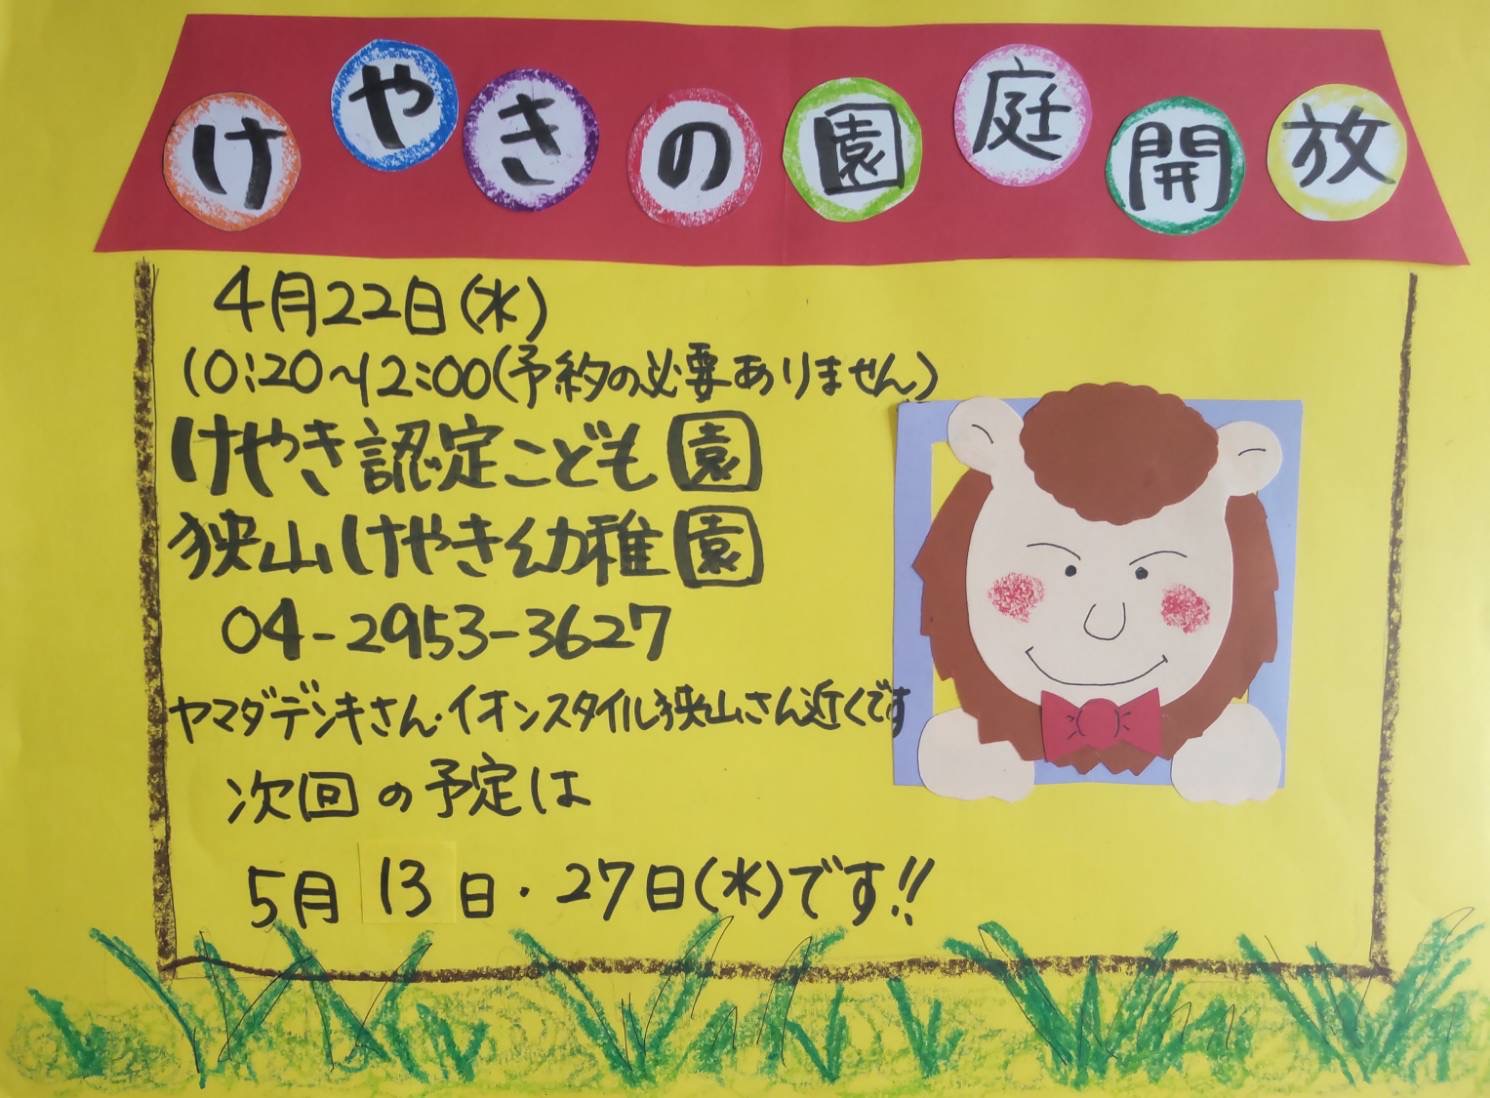 けやきの園庭開放
4月22日(水)
10:20~12:00(予約の必要ありません)
けやき認定こども園
狭山けやき幼稚園
04-2953-3627
ヤマダデンキさん・イオンスタイル狭山さん近くです
次回の予定は
5月13日・27日(水)です!!